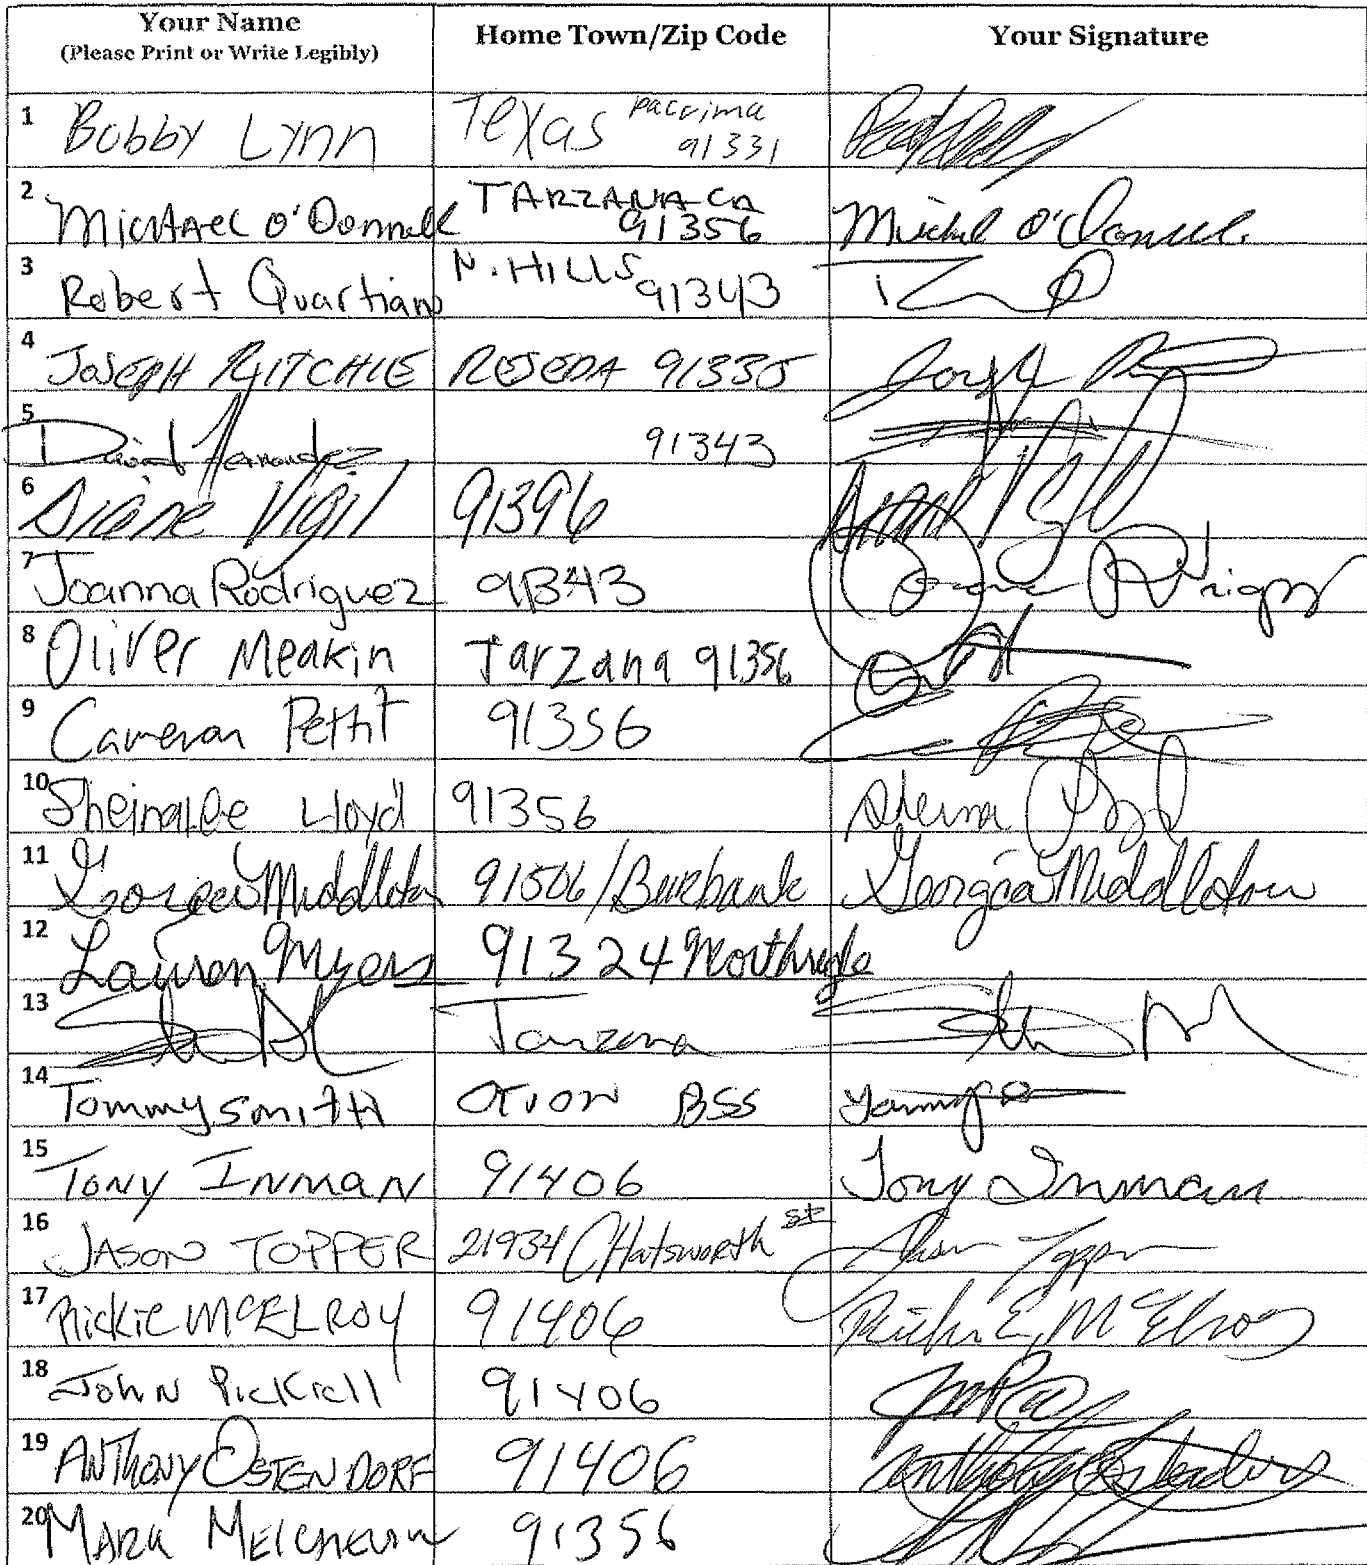 Your Name Home Town/Zip Code Your Signature
(Please Print or Write Legibly)
1 Bobby Lynn Texas Pacoima 91331
2 Michael O'Donnell TARZANA CA 91356 Michael O'Donnell
3 Robert Quartian N. HILLS 91343
4 JOSEPH RITCHIE RESEDA 91335 Joseph
5 David Hernandez 91343
6 Diane Vigil 91396 Diane Vigil
7 Joanna Rodriguez 91343
8 Oliver Meakin Tarzana 91356
9 Cameron Pettit 91356
10 Sheinalee Lloyd 91356
11 Georgia Middleton 91506/Burbank Georgia Middleton
12 Lauren Myers 91324 Northridge
13 Tarzana
14 Tommy Smith BSS
15 TONY INMAN 91406 Tony Inman
16 JASON TOPPER 21934 Chatsworth st Jason Topper
17 Rickie McELROY 91406 Rickie E. McElroy
18 JOHN Pickrell 91406
19 ANTHONY OSTENDORF 91406
20 MARK 91356